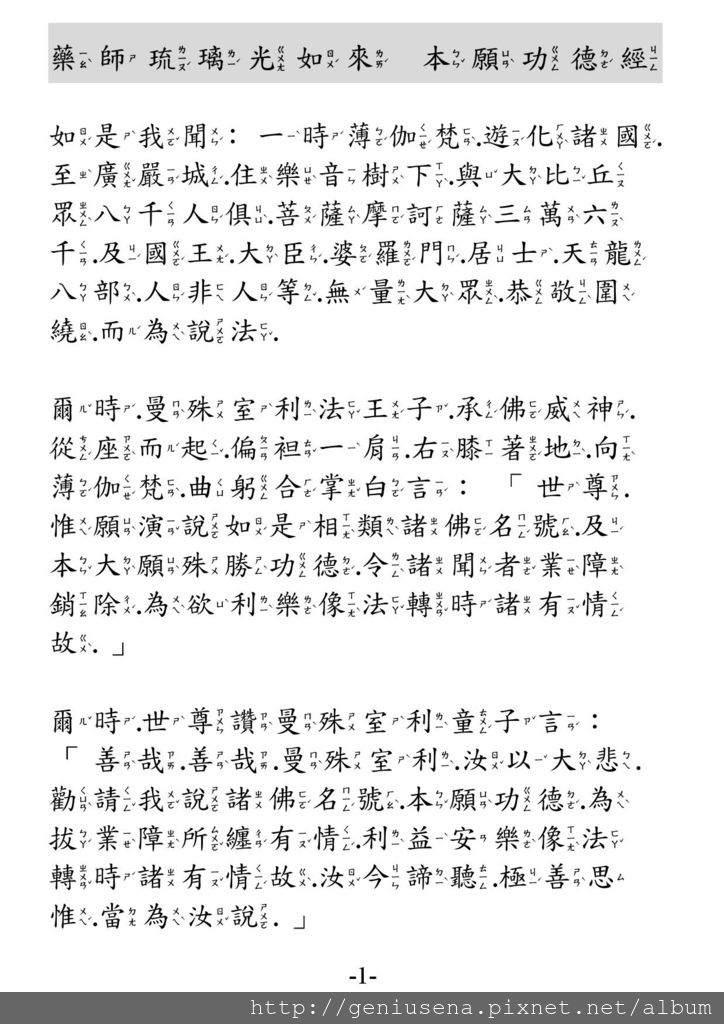 藥師琉璃光如來　本願功德經
如是我聞：一時薄伽梵.遊化諸國.
至廣嚴城.住樂音樹下.與大比丘
眾八千人俱.菩薩摩訶薩三萬六
千.及國王.大臣.婆羅門.居士.天龍
八部.人非人等.無量大眾.恭敬圍
繞.而為說法.
爾時.曼殊室利法王子.承佛威神.
從座而起.偏袒一肩.右膝著地.向
薄伽梵.曲躬合掌白言：「世尊.
惟願演說如是相類諸佛名號.及
本大願殊勝功德.令諸聞者業障
銷除.為欲利樂像法轉時諸有情
故.」
爾時.世尊讚曼殊室利童子言：
「善哉.善哉.曼殊室利.汝以大悲.
勸請我說諸佛名號.本願功德.為
拔業障所纏有情.利益安樂像法
轉時諸有情故.汝今諦聽.極善思
惟.當為汝說.」
-1-
http://geniusena.pixnet.net/album